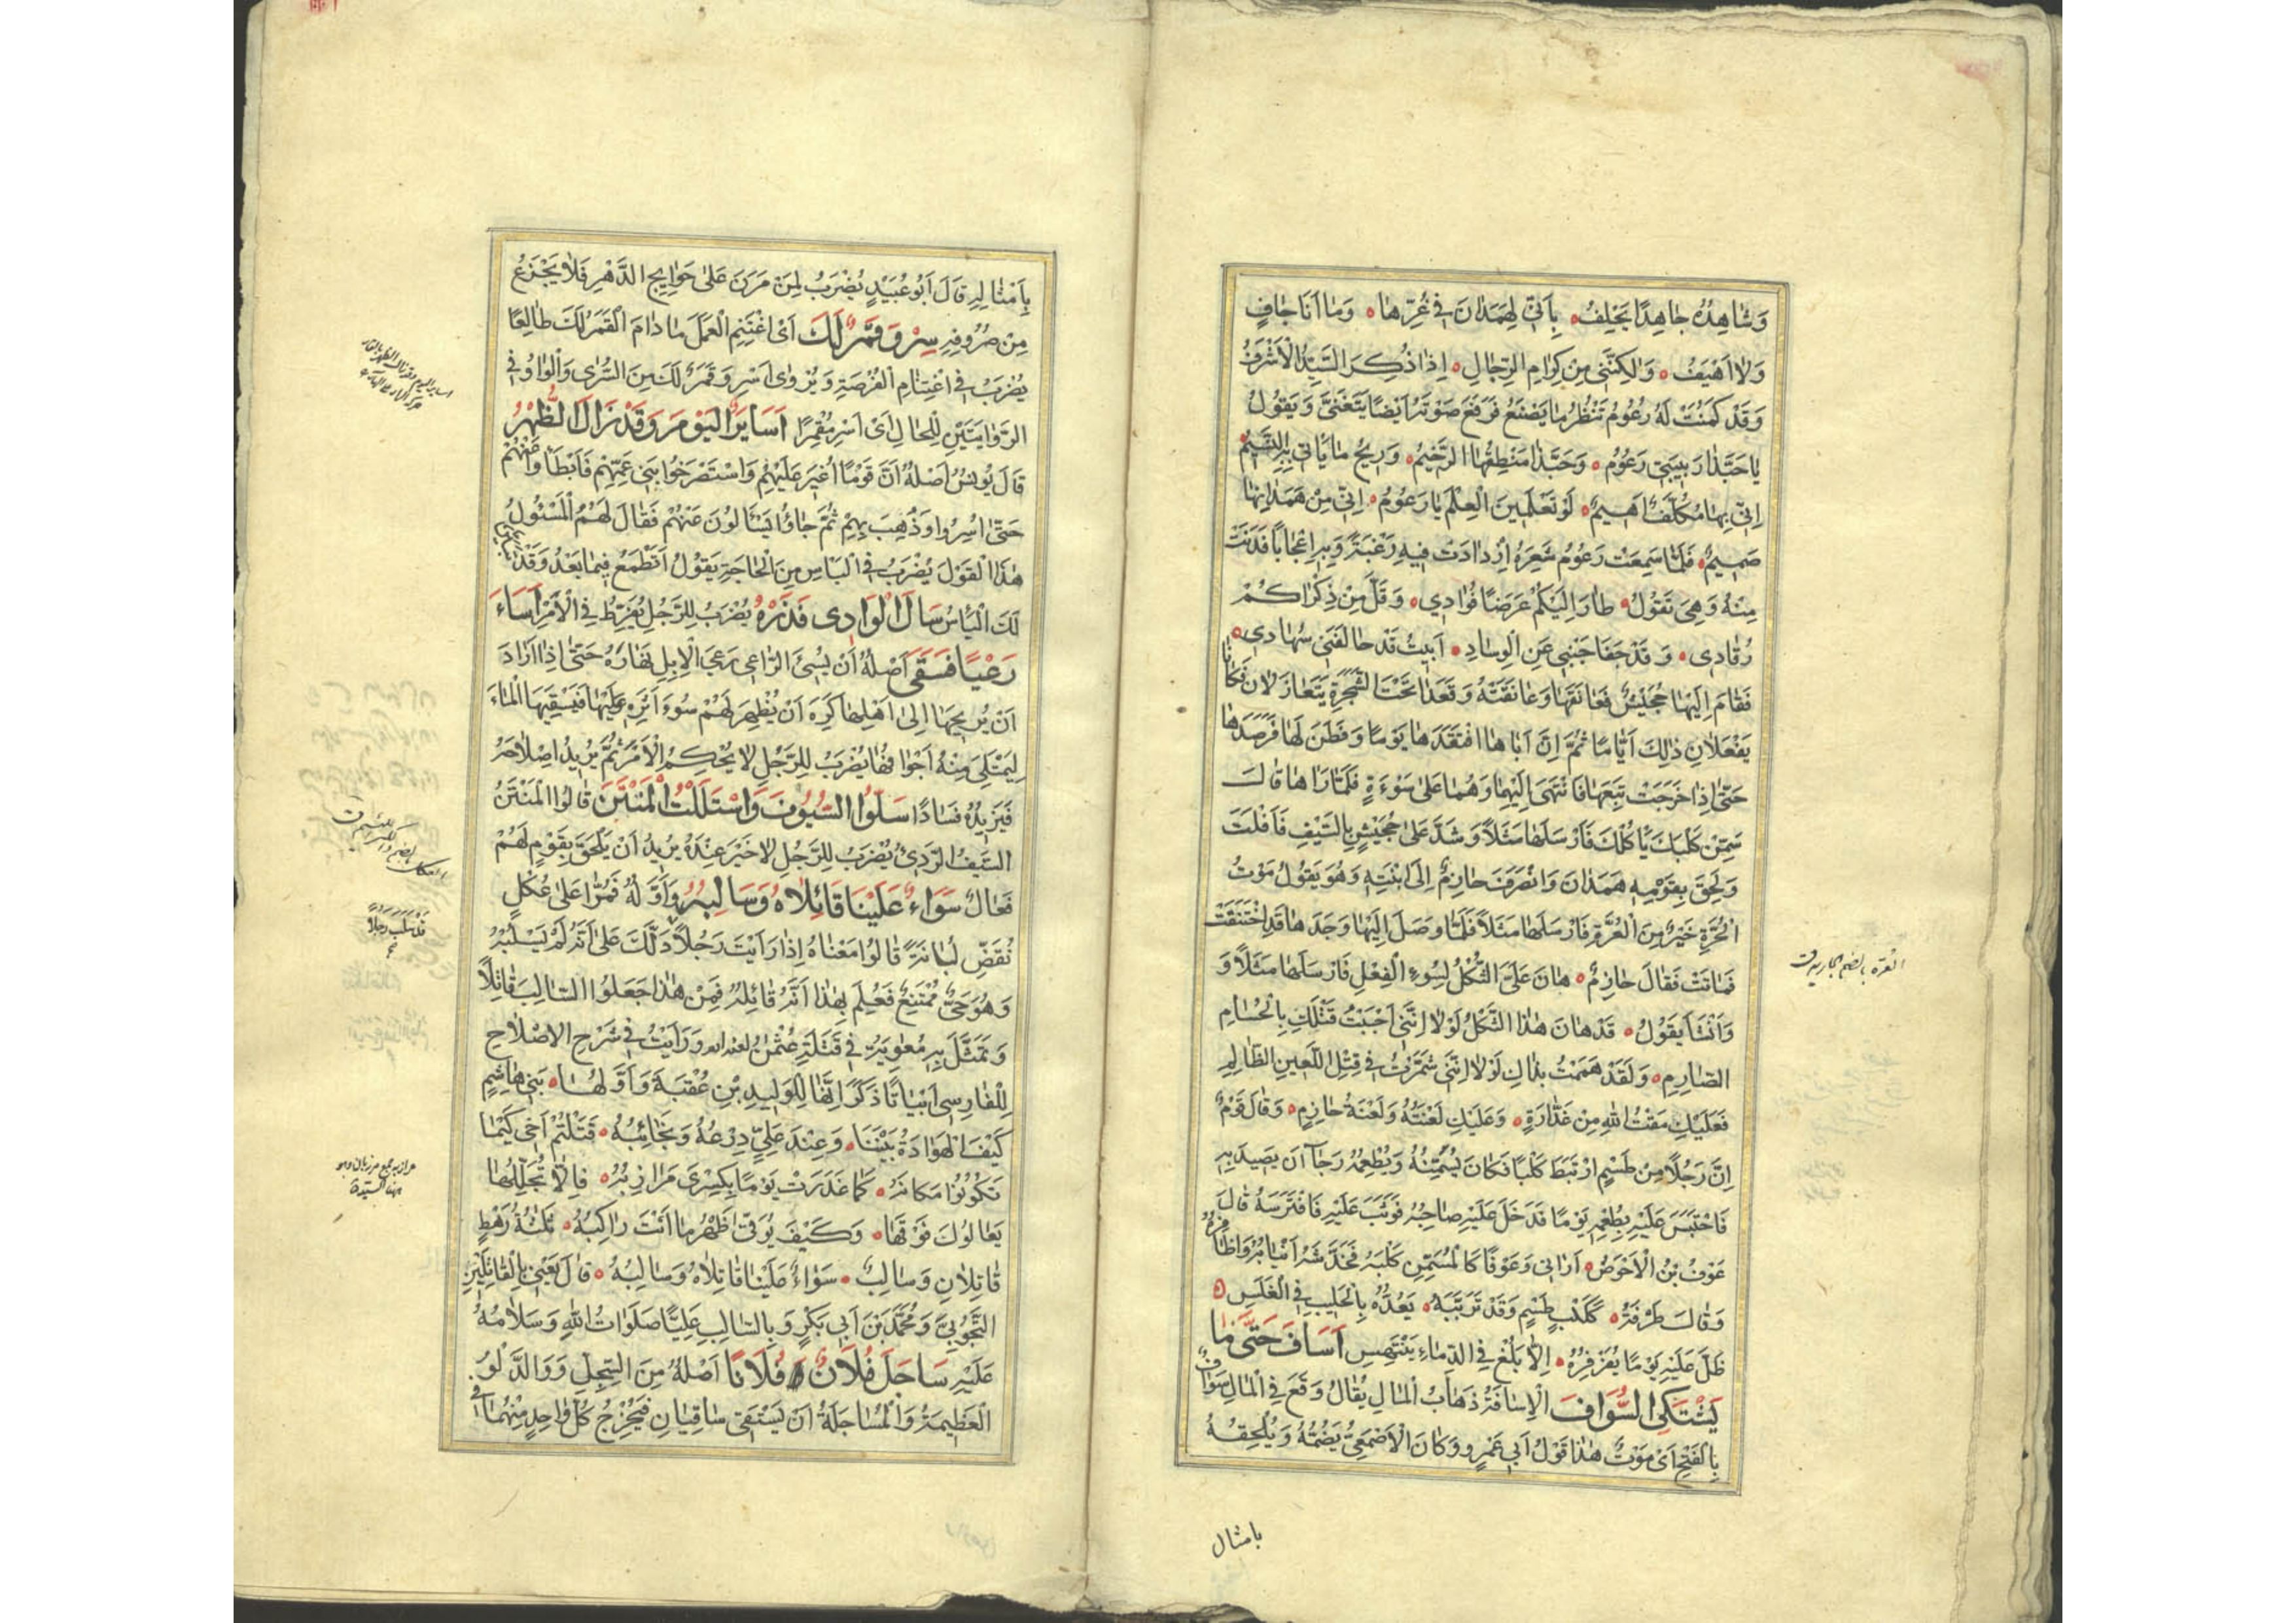 وَشَاهِدُهُ جَاهِدًا يَحْلِفُ ۰ بِأَنِّي لِهَمَدَانَ فِي عُزِّهَا ۰ وَمَا أَنَا جَافٍ
وَلَا أَهْيَفُ ۰ وَلٰكِنَّنِي مِنْ كِرَامِ الرِّجَالِ ۰ إِذَا ذُكِرَ السَّيِّدُ الْأَشْرَفُ
وَقَدْ كَمَنَتْ لَهُ رَعُومُ تَنْظُرُ مَا يَصْنَعُ فَرَفَعَ صَوْتَهُ أَيْضًا يَتَغَنَّى وَيَقُولُ
يَا حَبَّذَا رَبِيبَتِي رَعُومُ ۰ وَحَبَّذَا مَنْطِقُهَا الرَّخِيمُ ۰ وَرِيحُ مَا يَأْتِي بِهِ النَّسِيمُ
إِنِّي بِهَا مُكَلَّفٌ أَهِيمُ ۰ لَوْ تَعْلَمِينَ الْعِلْمَ يَا رَعُومُ ۰ إِنِّي مِنْ هَمَدَانِهَا
صَمِيمُ ۰ فَلَمَّا سَمِعَتْ رَعُومُ شِعْرَهُ ازْدَادَتْ فِيهِ رَغْبَةً وَبِهِ إِعْجَابًا فَدَنَتْ
مِنْهُ وَهِيَ تَقُولُ ۰ طَارَ إِلَيْكُمْ عَرَضًا فُؤَادِي ۰ وَقَلَّ مِنْ ذِكْرَاكُمْ
رُقَادِي ۰ وَقَدْ جَفَا جَنْبِي عَنِ الْوِسَادِ ۰ أَبِيتُ قَدْ حَالَفَنِي سُهَادِي ۰
فَقَامَ إِلَيْهَا جُحَيْشٌ فَعَانَقَهَا وَعَانَقَتْهُ وَقَعَدَا تَحْتَ الشَّجَرَةِ يَتَغَازَلَانِ فَكَانَا
يَفْعَلَانِ ذٰلِكَ أَيَّامًا ثُمَّ إِنَّ أَبَاهَا افْتَقَدَهَا يَوْمًا وَفَطَنَ لَهَا فَرَصَدَهَا
حَتَّى إِذَا خَرَجَتْ تَبِعَهَا فَانْتَهَى إِلَيْهِمَا وَهُمَا عَلَى سَوْءَةٍ فَلَمَّا رَآهَا قَالَ
سَمِّنْ كَلْبَكَ يَأْكُلْكَ فَأَرْسَلَهَا مَثَلًا وَشَدَّ عَلَى جُحَيْشٍ بِالسَّيْفِ فَأَفْلَتَ
وَلَحِقَ بِقَوْمِهِ هَمَدَانَ وَانْصَرَفَ حَازِمٌ إِلَى ابْنَتِهِ وَهُوَ يَقُولُ مَوْتُ
الْحُرَّةِ خَيْرٌ مِنَ الْعُرَّةِ فَأَرْسَلَهَا مَثَلًا فَلَمَّا وَصَلَ إِلَيْهَا وَجَدَهَا قَدِ اخْتَنَقَتْ
فَمَاتَتْ فَقَالَ حَازِمٌ ۰ هَانَ عَلَيَّ الثُّكْلُ لِسُوءِ الْفِعْلِ فَأَرْسَلَهَا مَثَلًا وَ
وَأَنْشَأَ يَقُولُ ۰ قَدْ هَانَ هٰذَا الثُّكْلُ لَوْلَا إِنَّنِي أَحْبَبْتُ قَتْلَكِ بِالْحُسَامِ
الصَّارِمِ ۰ وَلَقَدْ هَمَمْتُ بِذَاكِ لَوْلَا إِنَّنِي شَمَّرْتُ فِي قَتْلِ اللَّعِينِ الظَّالِمِ
فَعَلَيْكِ مَقْتُ اللهِ مِنْ غَدَّارَةٍ ۰ وَعَلَيْكِ لَعْنَتُهُ وَلَعْنَةُ حَازِمٍ ۰ وَقَالَ قَوْمٌ
إِنَّ رَجُلًا مِنْ طَسْمٍ ارْتَبَطَ كَلْبًا فَكَانَ يُسَمِّنُهُ وَيُطْعِمُهُ رَجَاءَ أَنْ يَصِيدَ بِهِ
فَاحْتَبَسَ عَلَيْهِ بِطُعْمِهِ يَوْمًا فَدَخَلَ عَلَيْهِ صَاحِبُهُ فَوَثَبَ عَلَيْهِ فَافْتَرَسَهُ قَالَ
عَوْفُ بْنُ الْأَحْوَصِ ۰ أَرَانِي وَعَوْفًا كَالْمُسَمِّنِ كَلْبَهُ فَخَدَّشَهُ أَنْيَابُهُ وَأَظَافِرُهُ
وَقَالَ طَرَفَةُ ۰ كَكَلْبِ طَسْمٍ وَقَدْ تَرَبَّبَهُ ۰ يَعُدُّهُ بِالْحَلِيبِ فِي الْغَلَسِ ۰
ظَلَّ عَلَيْهِ يَوْمًا يُفَرْفِرُهُ ۰ إِلَّا يَلَغْ فِي الدِّمَاءِ يَنْتَهِسِ أَسَافَ حَتَّى مَا
يَشْتَكِي السُّوَافَ الْإِسَافَةُ ذَهَابُ الْمَالِ يُقَالُ وَقَعَ فِي الْمَالِ سَوَافٌ
بِالْفَتْحِ أَيْ مَوْتٌ هٰذَا قَوْلُ أَبِي عَمْرٍو وَكَانَ الْأَصْمَعِيُّ يَضُمُّهُ وَيُلْحِقُهُ
بامثال
العرة بالضم الجارية ق
بِأَمْثَالِهِ قَالَ أَبُو عُبَيْدٍ يُضْرَبُ لِمَنْ مَرَنَ عَلَى حَوَايِجِ الدَّهْرِ فَلَا يَجْزَعُ
مِنْ صُرُوفِهِ سِرْ وَقَمَرٌ لَكَ أَيْ اغْتَنِمِ الْعَمَلَ مَا دَامَ الْقَمَرُ لَكَ طَالِعًا
يُضْرَبُ فِي اغْتِنَامِ الْفُرْصَةِ وَيُرْوَى اسْرِ وَقَمَرٌ لَكَ مِنَ السُّرَى وَالْوَاوُ فِي
الرِّوَايَتَيْنِ لِلْحَالِ أَيْ اسْرِ مُقْمِرًا أَسَائِرَ الْيَوْمِ وَقَدْ زَالَ الظُّهْرُ
قَالَ يُونُسُ أَصْلُهُ أَنَّ قَوْمًا أُغِيرَ عَلَيْهِمْ وَاسْتَصْرَخُوا بَنِي عَمِّهِمْ فَأَبْطَأُوا عَنْهُمْ
حَتَّى أُسِرُوا وَذُهِبَ بِهِمْ ثُمَّ جَاؤُا يَسْأَلُونَ عَنْهُمْ فَقَالَ لَهُمُ الْمَسْئُولُ
هٰذَا الْقَوْلَ يُضْرَبُ فِي الْيَأْسِ مِنَ الْحَاجَةِ يَقُولُ أَتَطْمَعُ فِيمَا بَعُدَ وَقَدْ تَبَيَّنَ
لَكَ الْيَأْسُ سَالَ الْوَادِي فَذَرْهُ يُضْرَبُ لِلرَّجُلِ يُفَرِّطُ فِي الْأَمْرِ أَسَاءَ
رَعْيًا فَسَقَى أَصْلُهُ أَنْ يُسِئَ الرَّاعِي رَعْيَ الْإِبِلِ نَهَارَهُ حَتَّى إِذَا أَرَادَ
أَنْ يُرِيحَهَا إِلَى أَهْلِهَا كَرِهَ أَنْ يُظْهِرَ لَهُمْ سُوءَ أَثَرِهِ عَلَيْهَا فَيَسْقِيهَا الْمَاءَ
لِيَمْتَلِئَ مِنْهُ أَجْوَافُهَا يُضْرَبُ لِلرَّجُلِ لَا يُحْكِمُ الْأَمْرَ ثُمَّ يُرِيدُ إِصْلَاحَهُ
فَيَزِيدُهُ فَسَادًا سَلُّوا السُّيُوفَ وَاسْتَلَلْتُ الْمَنْتَنَ قَالُوا الْمَنْتَنُ
السَّيْفُ الرَّدِئُ يُضْرَبُ لِلرَّجُلِ لَا خَيْرَ عِنْدَهُ يُرِيدُ أَنْ يَلْحَقَ بِقَوْمٍ لَهُمْ
فَعَالٌ سَوَاءٌ عَلَيْنَا قَاتِلَاهُ وَسَالِبُهُ وَأَوَّلُهُ فَمُرَّا عَلَى عُكْلٍ
نُقَضِّ لُبَانَةً قَالُوا مَعْنَاهُ إِذَا رَأَيْتَ رَجُلًا دَلَّكَ عَلَى أَنَّهُ لَمْ يَسْلُبْهُ
وَهُوَ حَيٌّ مُمْتَنِعٌ فَعُلِمَ بِهٰذَا أَنَّهُ قَاتِلُهُ فَمِنْ هٰذَا جَعَلُوا السَّالِبَ قَاتِلًا
وَتَمَثَّلَ بِهِ مُعٰوِيَةُ فِي قَتَلَةِ عُثْمٰنَ وَرَأَيْتُ فِي شَرْحِ الْإِصْلَاحِ
لِلْفَارِسِي أَبْيَاتًا ذَكَرَ أَنَّهَا لِلْوَلِيدِ بْنِ عُقْبَةَ وَأَوَّلُهَا ۰ بَنِي هَاشِمٍ
كَيْفَ الْهَوَادَةُ بَيْنَنَا ۰ وَعِنْدَ عَلِيٍّ دِرْعُهُ وَنَجَائِبُهُ ۰ قَتَلْتُمْ أَخِي كَيْمَا
تَكُونُوا مَكَانَهُ ۰ كَمَا غَدَرَتْ يَوْمًا بِكِسْرَى مَرَازِبُهُ ۰ فَإِلَّا تُحَلِّلْهَا
يُعَالُوكَ فَوْقَهَا ۰ وَكَيْفَ يُوَقِّي ظَهْرُ مَا أَنْتَ رَاكِبُهُ ۰ ثَلٰثَةُ رَهْطٍ
قَاتِلَانِ وَسَالِبٌ ۰ سَوَاءٌ عَلَيْنَا قَاتِلَاهُ وَسَالِبُهُ ۰ قَالَ يَعْنِي بِالْقَاتِلَيْنِ
التَّجُوبِيَّ وَمُحَمَّدَ بْنَ أَبِي بَكْرٍ وَبِالسَّالِبِ عَلِيًّا صَلَوَاتُ اللهِ وَسَلَامُهُ
عَلَيْهِ سَاجَلَ فُلَانٌ فُلَانًا أَصْلُهُ مِنَ السَّجْلِ وَوَ الدَّلْوُ
الْعَظِيمَةُ وَالْمُسَاجَلَةُ أَنْ يَسْتَقِيَ سَاقِيَانِ فَيُخْرِجُ كُلُّ وَاحِدٍ مِنْهُمَا فِي
قَدْ سَلَبَ رَجُلًا